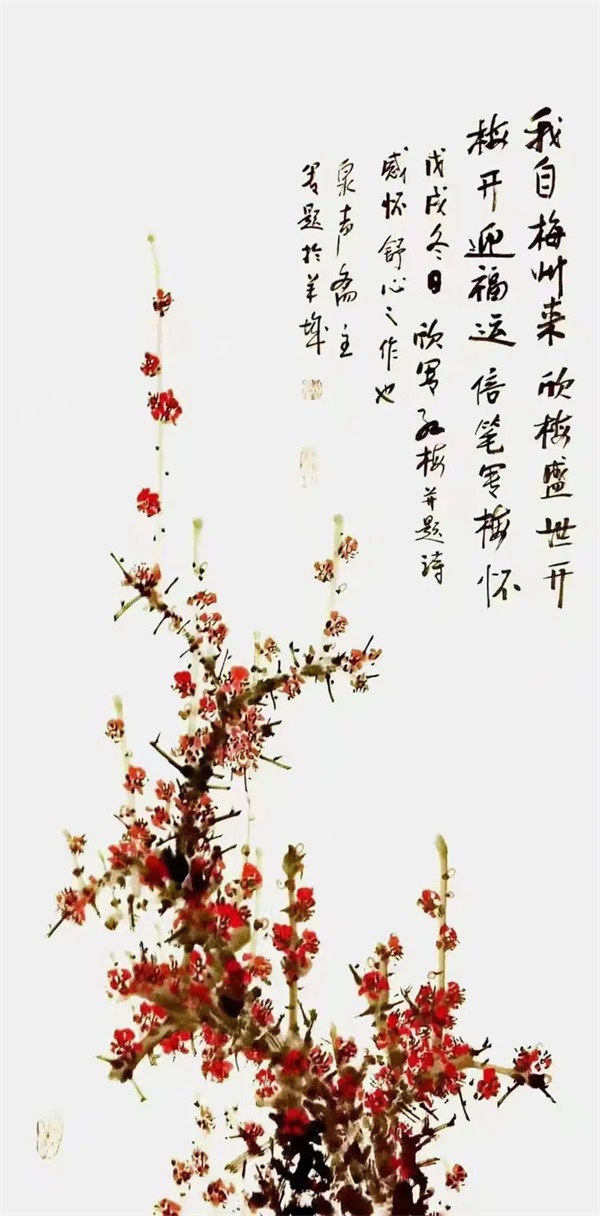 我自梅州来 欣梅盛世开
梅开迎福运 倍笔写梅怀
戊戌冬日 欣写红梅并题诗
感怀舒心之作也
泉声斋主
写题於羊城